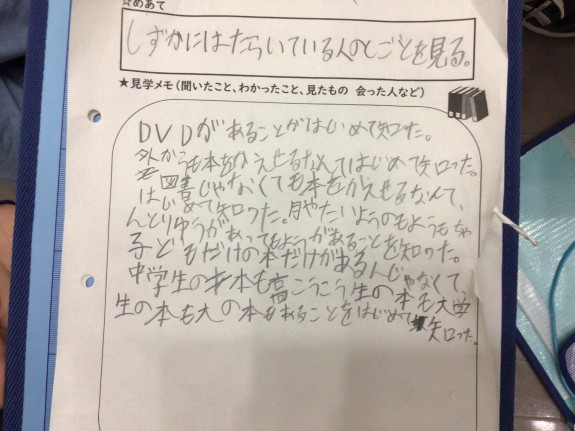 ☆めあて
しずかにはたらいている人のしごとを見る。
★見学メモ（聞いたこと、わかったこと、見たもの 会った人など）
DVDがあることがはじめて知った。
外からも本をかえせるなんてはじめて知った。
図書じゃなくても本をかえせるなんて、
はじめて知った。月やたいようのもようもちゃ
んとりゆうがあってもようがあることを知った。
子どもだけの本だけがあるんじゃなくて、
中学生の本も高こうこう生の本も大学
生の本も大の本があることをはじめて知った。